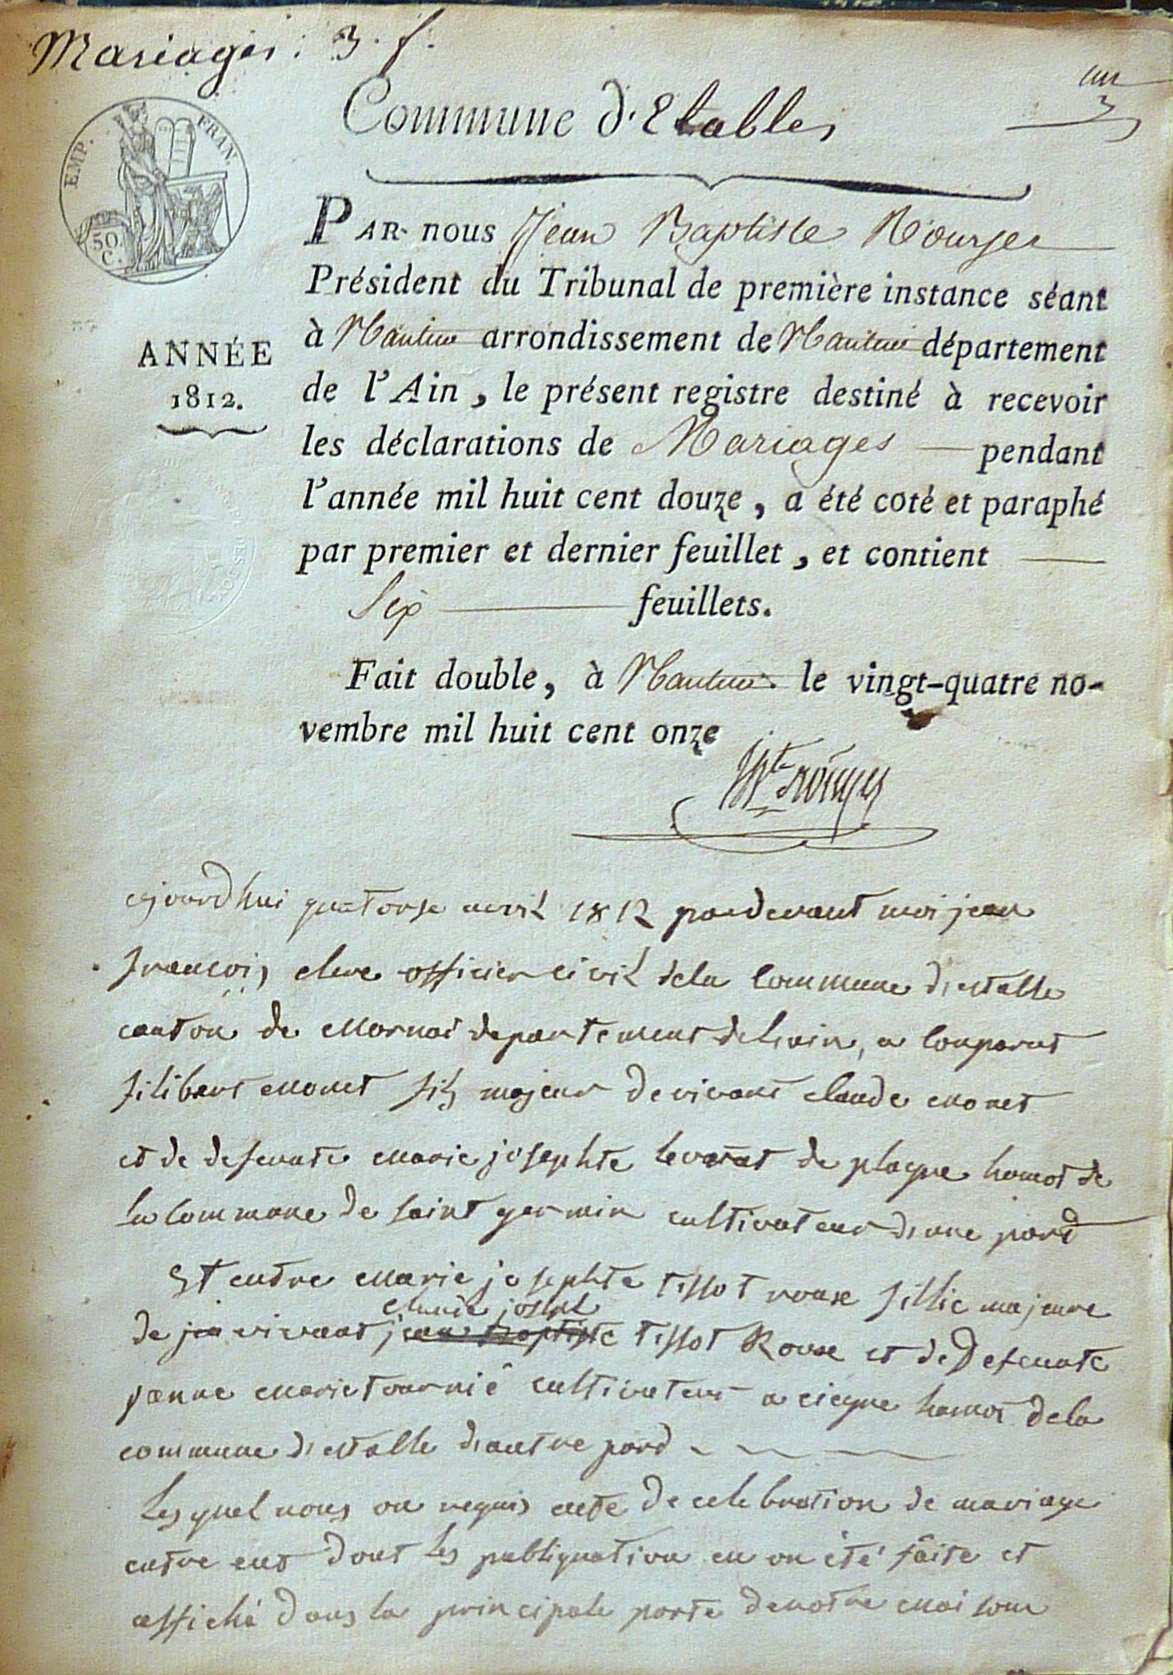 Mariages : 3. f.
un
Commune d'Etables
EMP. FRAN.
50 C.
ANNÉE
1812.
PAR nous Jean Baptiste Rouyer
Président du Tribunal de première instance séant
à Nantua arrondissement de Nantua département
de l'Ain, le présent registre destiné à recevoir
les déclarations de Mariages pendant
l'année mil huit cent douze, a été coté et paraphé
par premier et dernier feuillet, et contient
Six feuillets.
Fait double, à Nantua le vingt-quatre no-
vembre mil huit cent onze
ajourdhui quatorse avril 1812 pardevant moi jean
francois officier civil dela Commune detable
canton de departement de lain, a Conparut
filibert monet fils majeur de vivant claude monet
et de defunte marie josephte de plagne hamot de
la Commune de saint germin cultivateur dune pard
Et entre marie josephte tissot rouse fillie majeure
claude joseph
de vivant jean baptiste tissot Rouse et de Defunte
janne marie cultivateur a hamot dela
commune detable dautre pard
Lesquel nous on requis de celebration de mariage
entre eus dont les publiquation en on été faite et
affiché dans la principale porte denotre maison